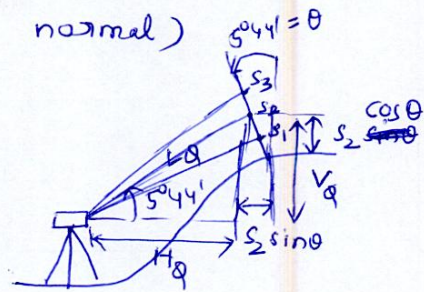 normal)
5°44' = θ
S3
S2
S1
cosθ
S2
LQ
5°44'
VQ
S2 sinθ
HQ